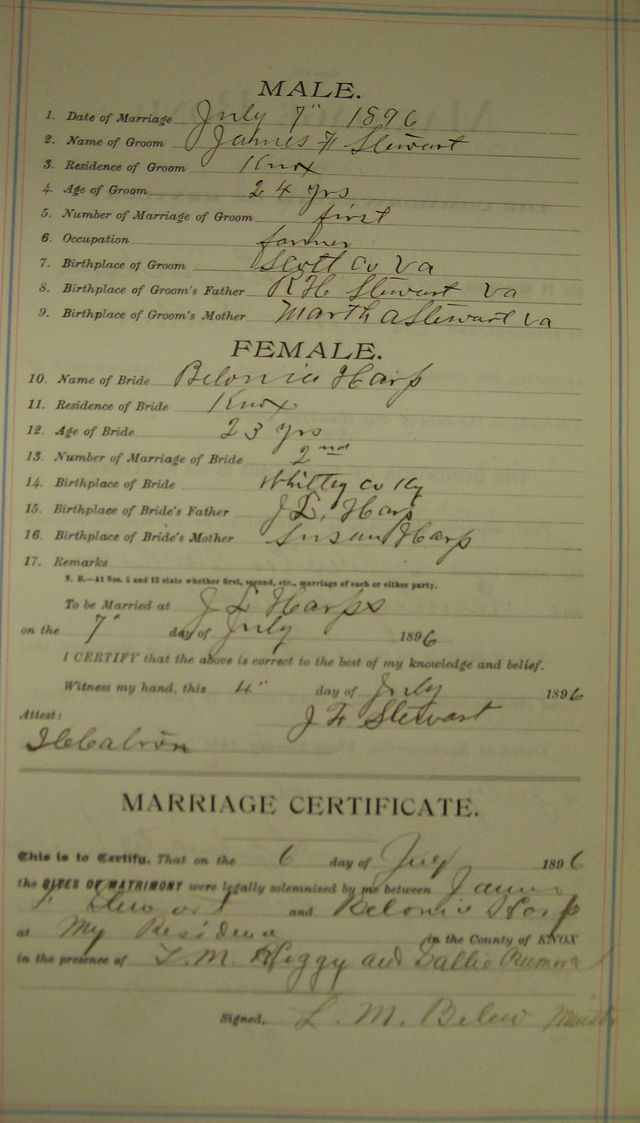 MALE.
1. Date of Marriage July 7" 1896
2. Name of Groom James F Stewart
3. Residence of Groom Knox
4. Age of Groom 24 yrs
5. Number of Marriage of Groom first
6. Occupation farmer
7. Birthplace of Groom Scott Co Va
8. Birthplace of Groom's Father R H Stewart Va
9. Birthplace of Groom's Mother Martha Stewart Va
FEMALE.
10. Name of Bride Belonia Harp
11. Residence of Bride Knox
12. Age of Bride 23 yrs
13. Number of Marriage of Bride 2nd
14. Birthplace of Bride Whitley Co Ky
15. Birthplace of Bride's Father J L Harp
16. Birthplace of Bride's Mother Susan Harp
17. Remarks
N. B.—At Nos. 5 and 13 state whether first, second, etc., marriage of each or either party.
To be Married at J L Harps
on the 7" day of July 1896
I CERTIFY that the above is correct to the best of my knowledge and belief.
Witness my hand, this 4" day of July 1896
Attest: J F Stewart
MARRIAGE CERTIFICATE.
This is to Certify, That on the 6 day of July 1896
the RITES OF MATRIMONY were legally solemnized by me between James
F Stewart and Belonia Harp
at My Residence in the County of KNOX
in the presence of T. M. and
Signed, L. M. Belew